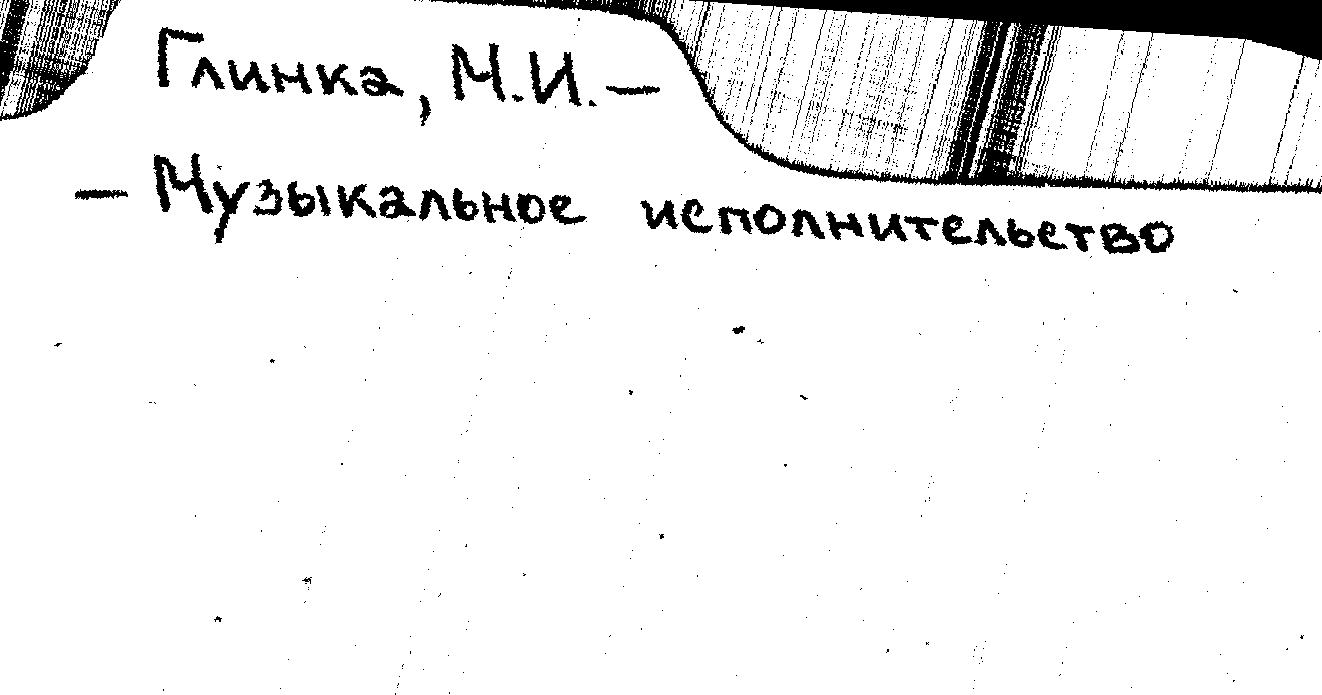 Глинка, М.И. —
— Музыкальное исполнительство